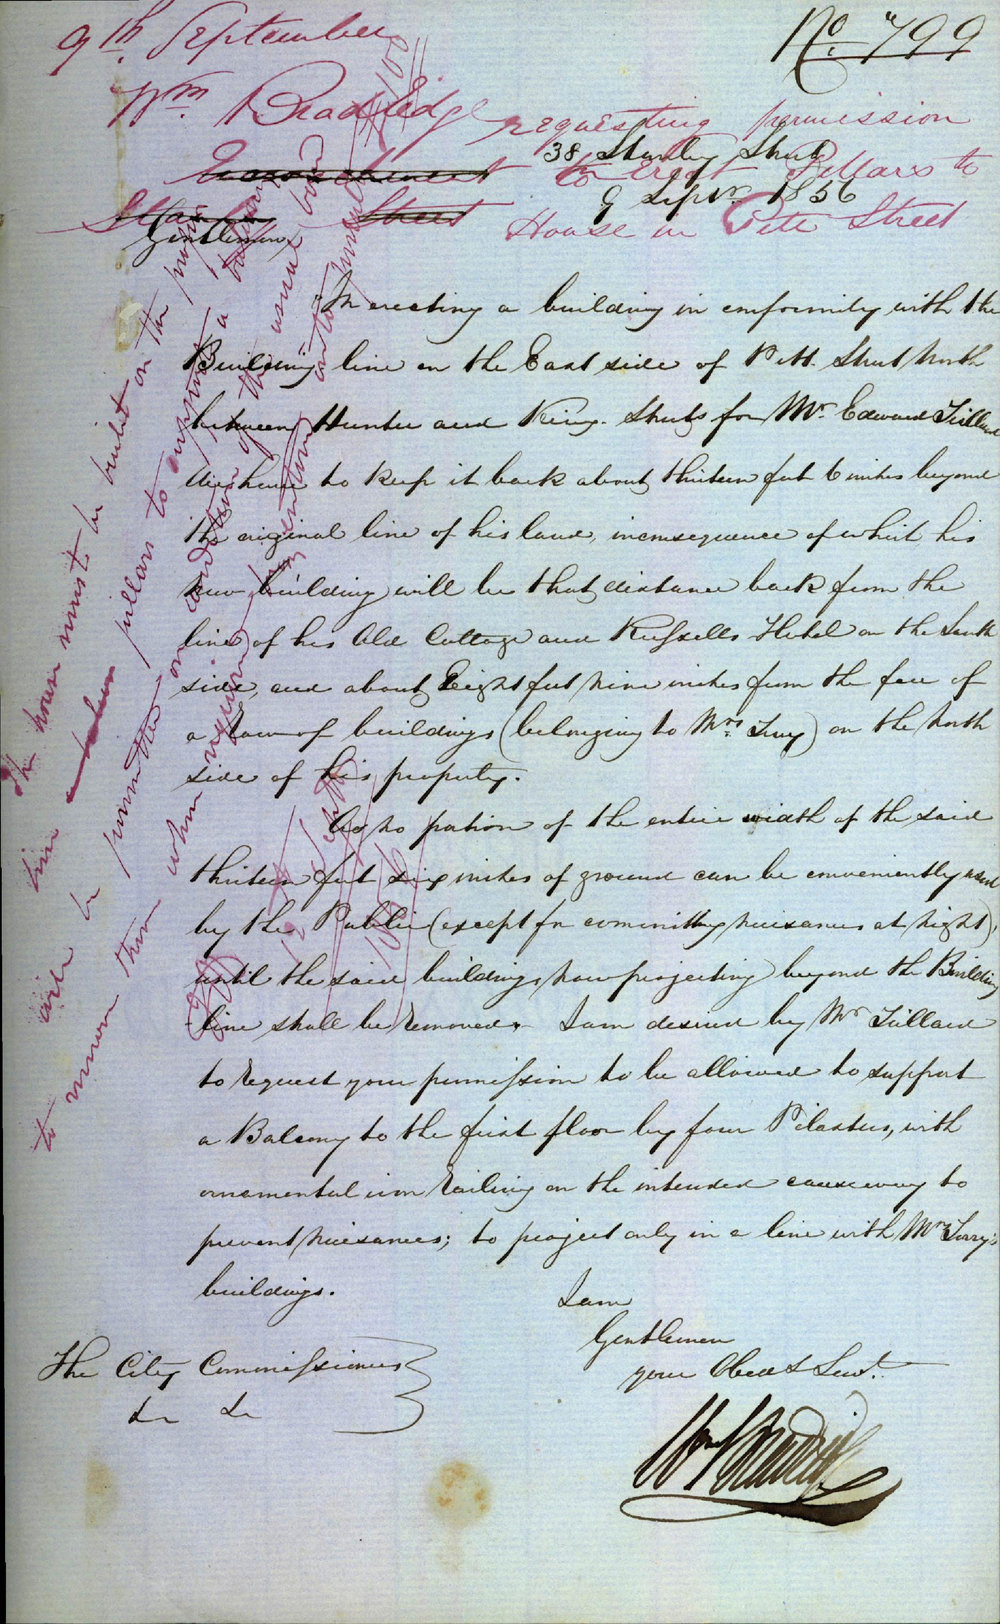 9th September
No. 799
Wm Bradridge requesting permission
Encroachment to erect Pillars to
Stanley Street House in Pitt Street
38 Stanley Street
9 Septr. 1856
Gentlemen,
In erecting a building in conformity with the
Building line on the East side of Pitt Street North
between Hunter and King Streets for Mr Edward
to keep it back about thirteen feet 6 inches beyond
the original line of his land, in consequence of which his
new building will be that distance back from the
line of his Old Cottage and Russells Hotel on the South
side, and about Eight feet nine inches from the face of
a row of buildings (belonging to Mrs Terry) on the North
side of his property.
As no portion of the entire width of the said
thirteen feet six inches of ground can be conveniently used
by the Public (except for committing nuisances at night),
until the said buildings now projecting beyond the Building
line shall be removed. I am desired by Mr
to request your permission to be allowed to support
a Balcony to the first floor by four Pilasters, with
ornamental iron railing on the intended causeway to
prevent nuisances; to project only in a line with Mrs Terry's
buildings.
I am
Gentlemen
your Obedt Servt.
Wm Bradridge
The City Commissioners
&c &c
The house must be built on the proper
line pillars to support a balcony
will be permitted on condition of the usual bond
being entered into
to remove them when required
12 Sept
1856